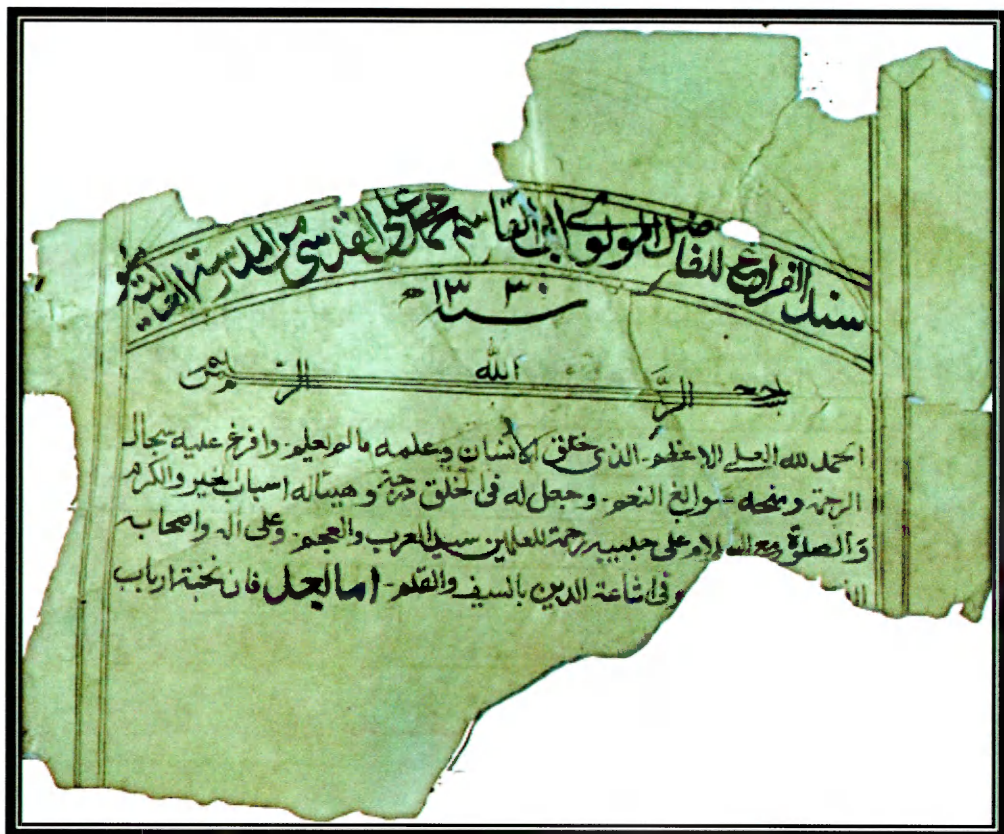 سند الفراغ للفاضل المولوی ابی القاسم محمد علی القدسی من المدرسة العالیة
سنه ۱۳۳۰ھ
بسم الله الرحمن الرحيم
الحمد لله العلی الاعظم۔ الذی خلق الانسان وعلمه مالم یعلم۔ وافرغ علیه سجال
الرحمة ومنحه سوابغ النعم۔ وجعل له فی الخلق درجة وهیأله اسباب الخیر والکرم
والصلوة مع السلام علی حبیبه رحمة للعلمین سید العرب والعجم۔ وعلی اله واصحابه
وفی اشاعة الدین بالسیف والقلم۔ امابعد فان نخبة ارباب